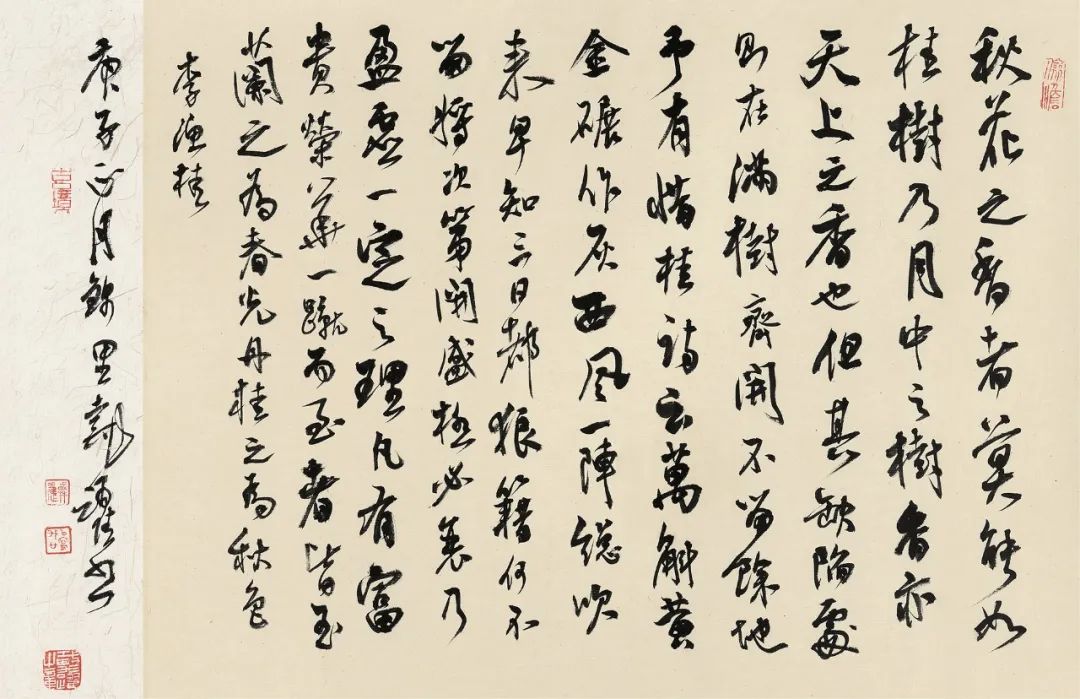 秋花之香者莫能如
桂樹乃月中之樹香亦
天上之香也但其缺陷處
則在滿樹齊開不留餘地
予有惜桂詩云萬斛黄
金碾作灰西風一陣總吹
来早知三日都狼籍何不
留將次第開盛極必衰乃
盈虛一定之理凡有富
貴榮華一蹴而至者皆玉
蘭之為春光丹桂之為秋色
李漁桂
庚子正月錦里戴躍書